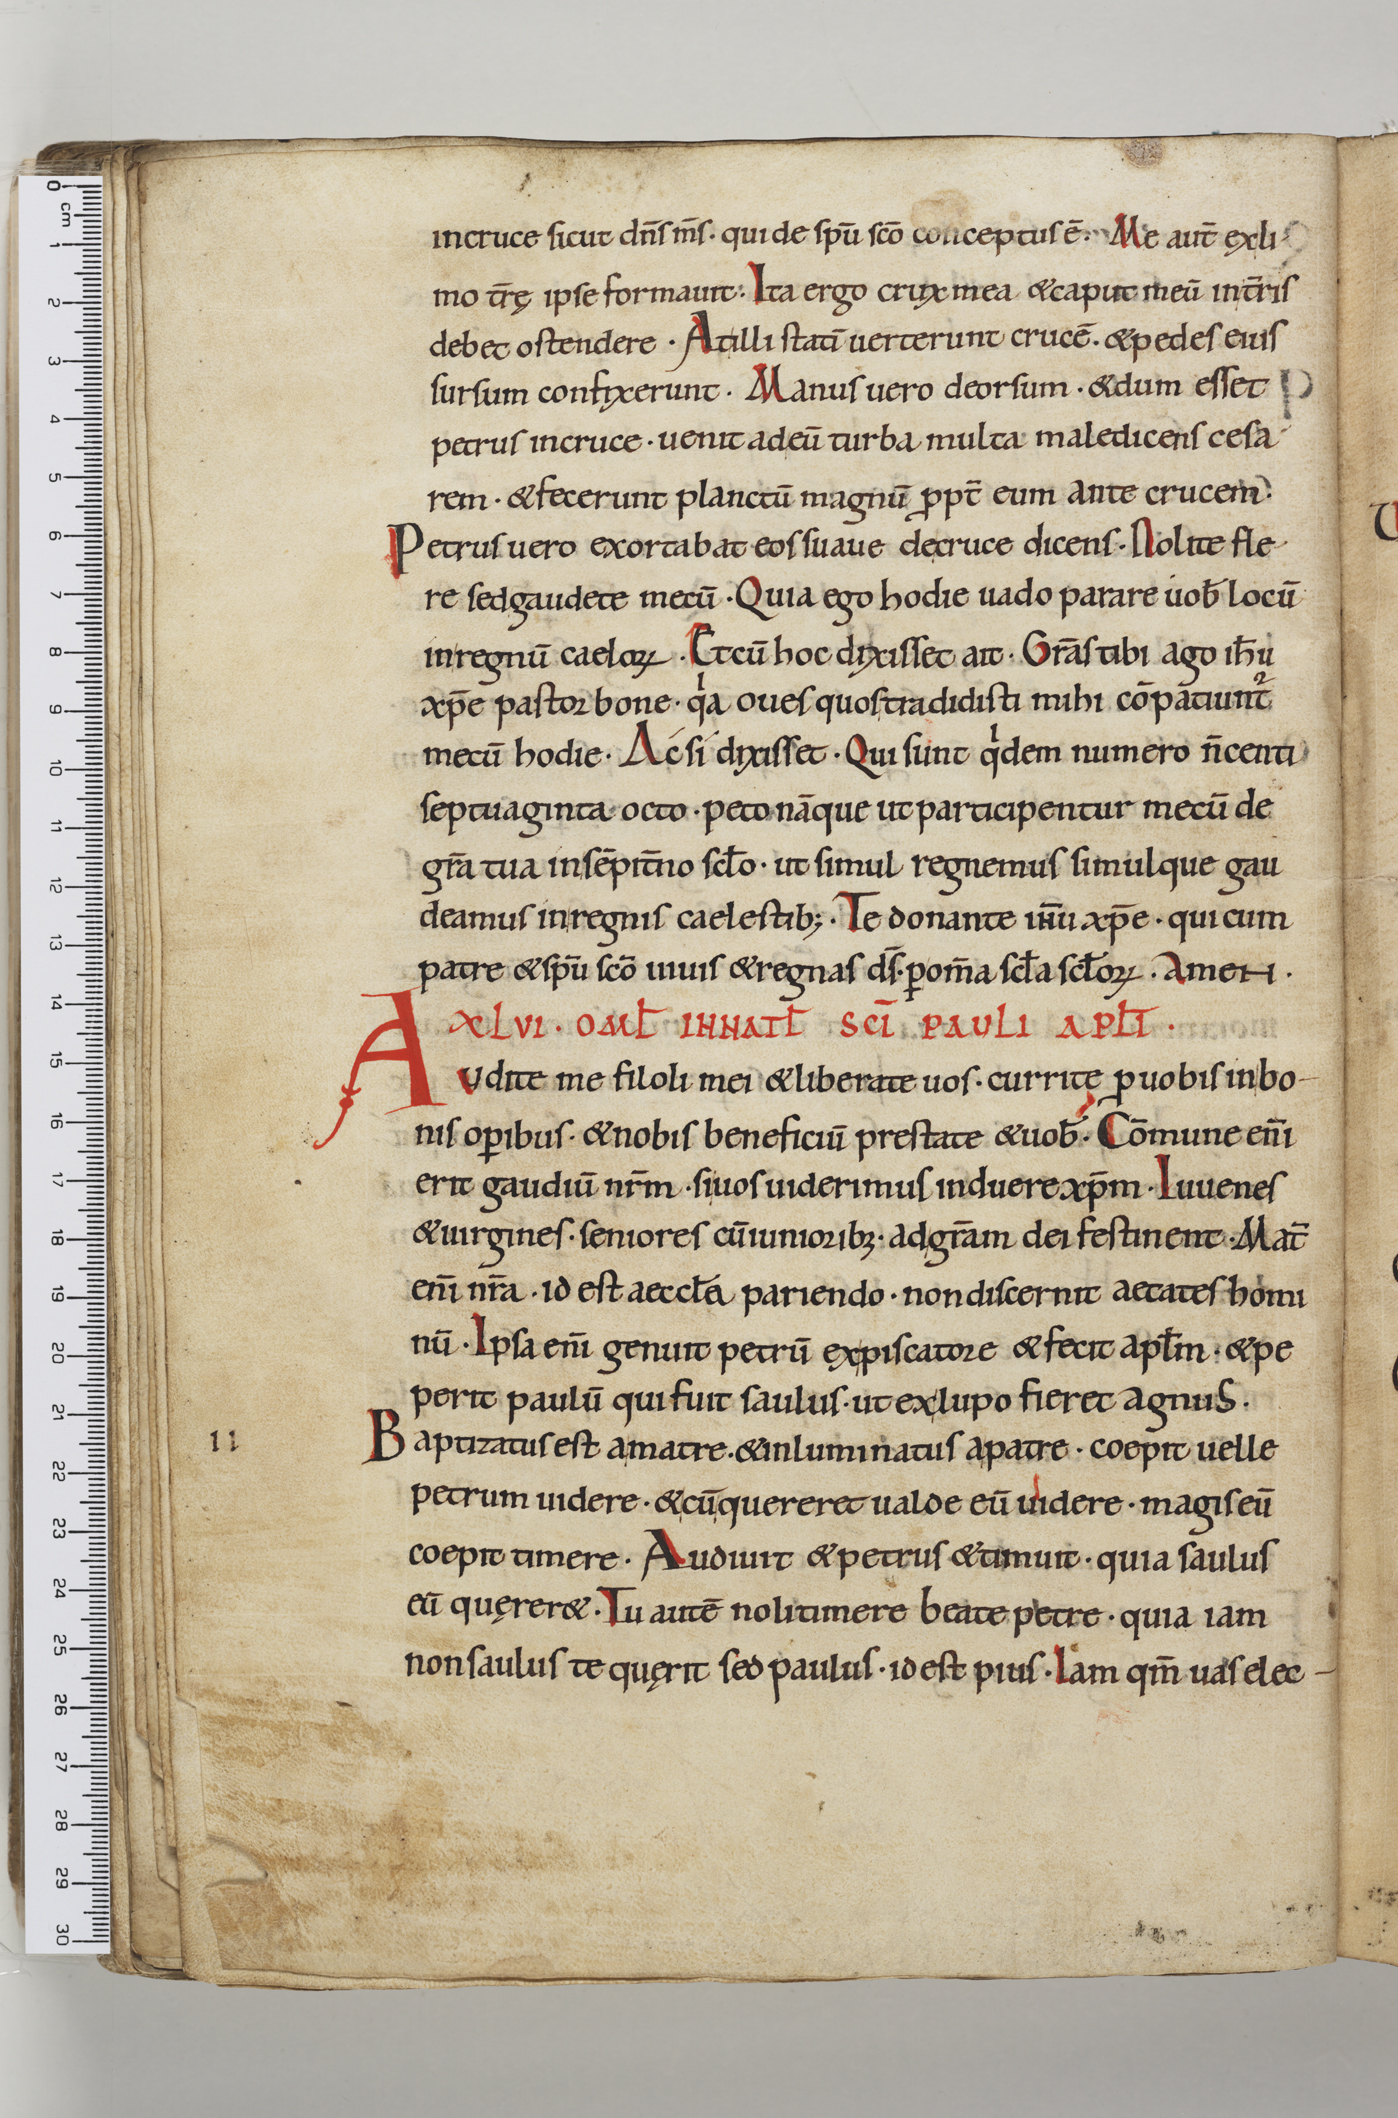 incruce sicut dn̄s m̄s · qui de sp̄u sc̄o conceptus ē · Me aut̄ exli
mo t̄rę ipse formauit : Ita ergo crux mea &caput meū int̄ris
debet ostendere · Atilli statī uerterunt crucē · &pedes eius
sursum confixerunt · Manus uero deorsum · &dum esset
petrus incruce · uenit adeū turba multa maledicens cesa
rem · &fecerunt planctū magnū ꝓpt̄ eum ante crucem :
Petrus uero exortabat eos suaue decruce dicens · Nolite fle
re sedgaudete mecū · Quia ego hodie uado parare uob̄ locū
inregnū caeloꝝ · Etcū hoc dixisset ait · Gr̄as tibi ago ih̄u
xp̄e pastor bone · qͥa oues quos tradidisti mihi cōpatiunt᷑
mecū hodie · Ac si dixisset · Qui sunt qͥdem numero n̄centi
septuaginta octo · peto nāque ut participentur mecū de
gr̄a tua insēpit̄no sc̄lo · ut simul regnemus simulque gau
deamus inregnis caelestibꝫ · Te donante ih̄u xp̄e · qui cum
patre &sp̄u sc̄o uiuis &regnas d̄s · ꝑ om̄a sc̄la sc̄loꝝ · Amen ·
XLVI · OML̄ INNATL̄ SCĪ PAULI APL̄I ·
Audite me filoli mei &liberate uos · currite ꝓ uobis inbo-
nis oꝑibus · &nobis beneficiū prestate &uob̄ · Cōmune enī
erit gaudiū nr̄m · si uos uiderimus induere xp̄m · Iuuenes
&uirgines · seniores cū iunioribꝫ · adgr̄am dei festinent · Mat̄
enī nr̄a · id est aeccl̄ea pariendo · non discernit aetates homi
nū · Ipsa enī genuit petrū expiscatore &fecit apl̄m · &pe
perit paulū qui fuit saulus · ut exlupo fieret agnus ·
11
Baptizatus est amatre · &inluminatus apatre · coepit uelle
petrum uidere · &cū quereret ualde eū uidere · magis eū
coepit timere · Audiuit &petrus &timuit · quia saulus
eū quęrer& · Tu autē noli timere beate petre · quia iam
non saulus te quęrit sed paulus · id est pius · Iam qm̄ uas elec-